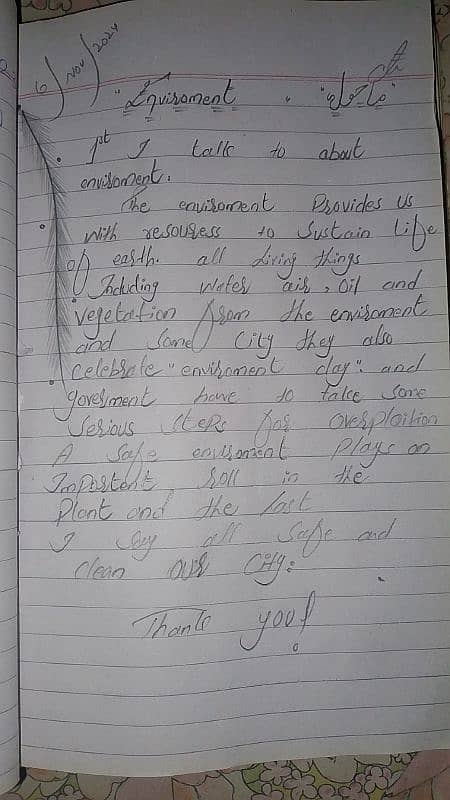 6/Nov/2024
"Enviroment" "ماحول"
1st I talk to about
enviroment.
The enviroment Provides us
with resouress to Sustain life
of eardh. all living things
Including Water air, oil and
vegetation from the enviroment
and some city they also
celebrate "enviroment day". and
goverment have to take some
Serious steps for overploition
A safe enviroment Plays an
Importent roll in the
Plant and the last
I say all safe and
clean our city.
Thank you!